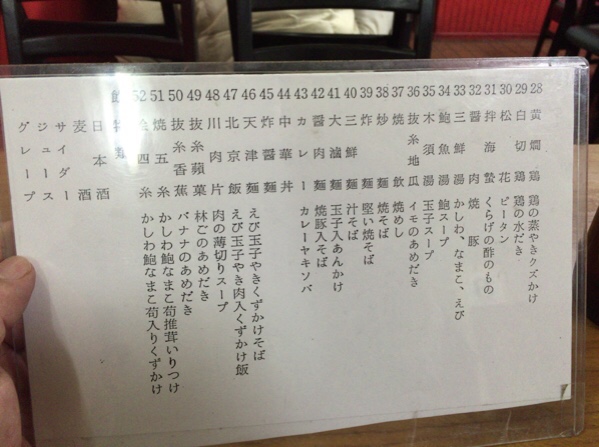 28 黄燗鶏 鶏の蒸やきクズかけ
29 白切鶏 鶏の水だき
30 松花 ピータン
31 拌海蟄 くらげの酢のもの
32 醤肉 焼豚
33 三鮮湯 かしわ、なまこ、えび
34 鮑魚湯 鮑スープ
35 木須湯 玉子スープ
36 抜糸地瓜 イモのあめだき
37 焼飲 焼めし
38 炒麺 焼そば
39 炸麺 堅い焼そば
40 三鮮麺 汁そば
41 大滷麺 玉子入あんかけ
42 醤肉麺 焼豚入そば
43 カレー麺 カレーヤキソバ
44 中華丼
45 炸醤麺
46 天津麺 えび玉子やきくずかけそば
47 北京飯 えび玉子やき肉入くずかけ飯
48 川肉片 肉の薄切りスープ
49 抜糸蘋菓 林ごのあめだき
50 抜糸香蕉 バナナのあめだき
51 焼五糸 かしわ鮑なまこ荀推茸いりつけ
52 会四糸 かしわ鮑なまこ荀入りくずかけ
飲物類
日本酒
麦酒
サイダー
ジュース
グレープ